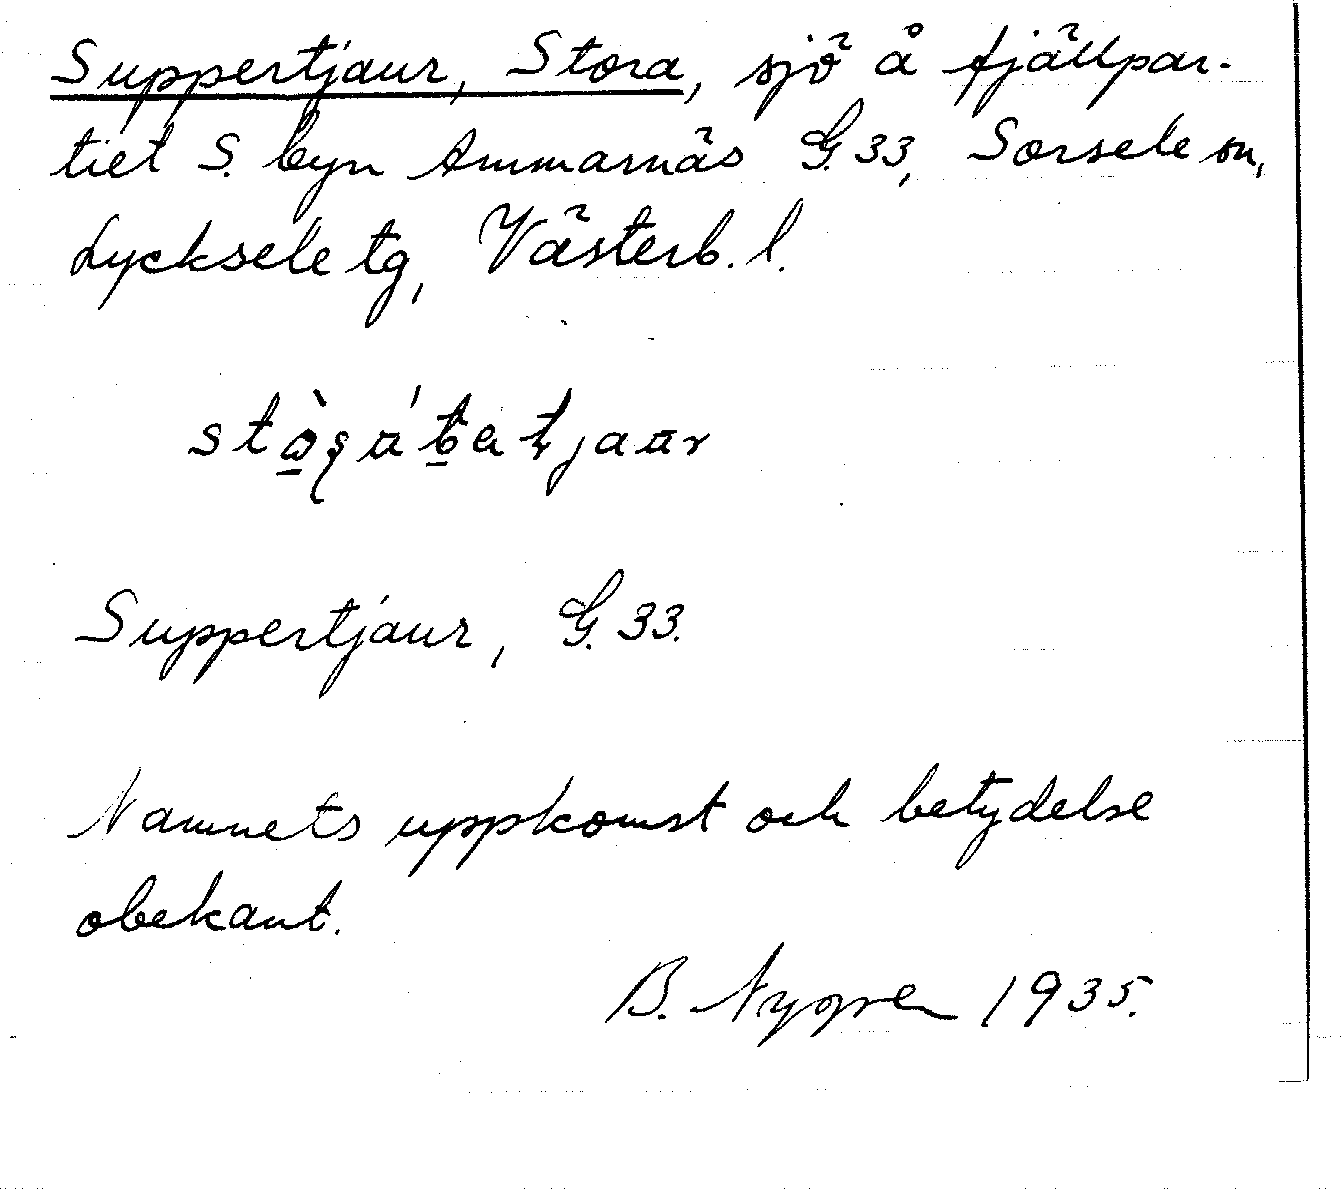 Suppertjaur, Stora, sjö å fjällpar-
tiet S. byn Ammarnäs G. 33, Sorsele sn,
Lycksele tg, Västerb. l.
Suppertjaur, G. 33.
Namnets uppkomst och betydelse
obekant.
B. Nygren 1935.